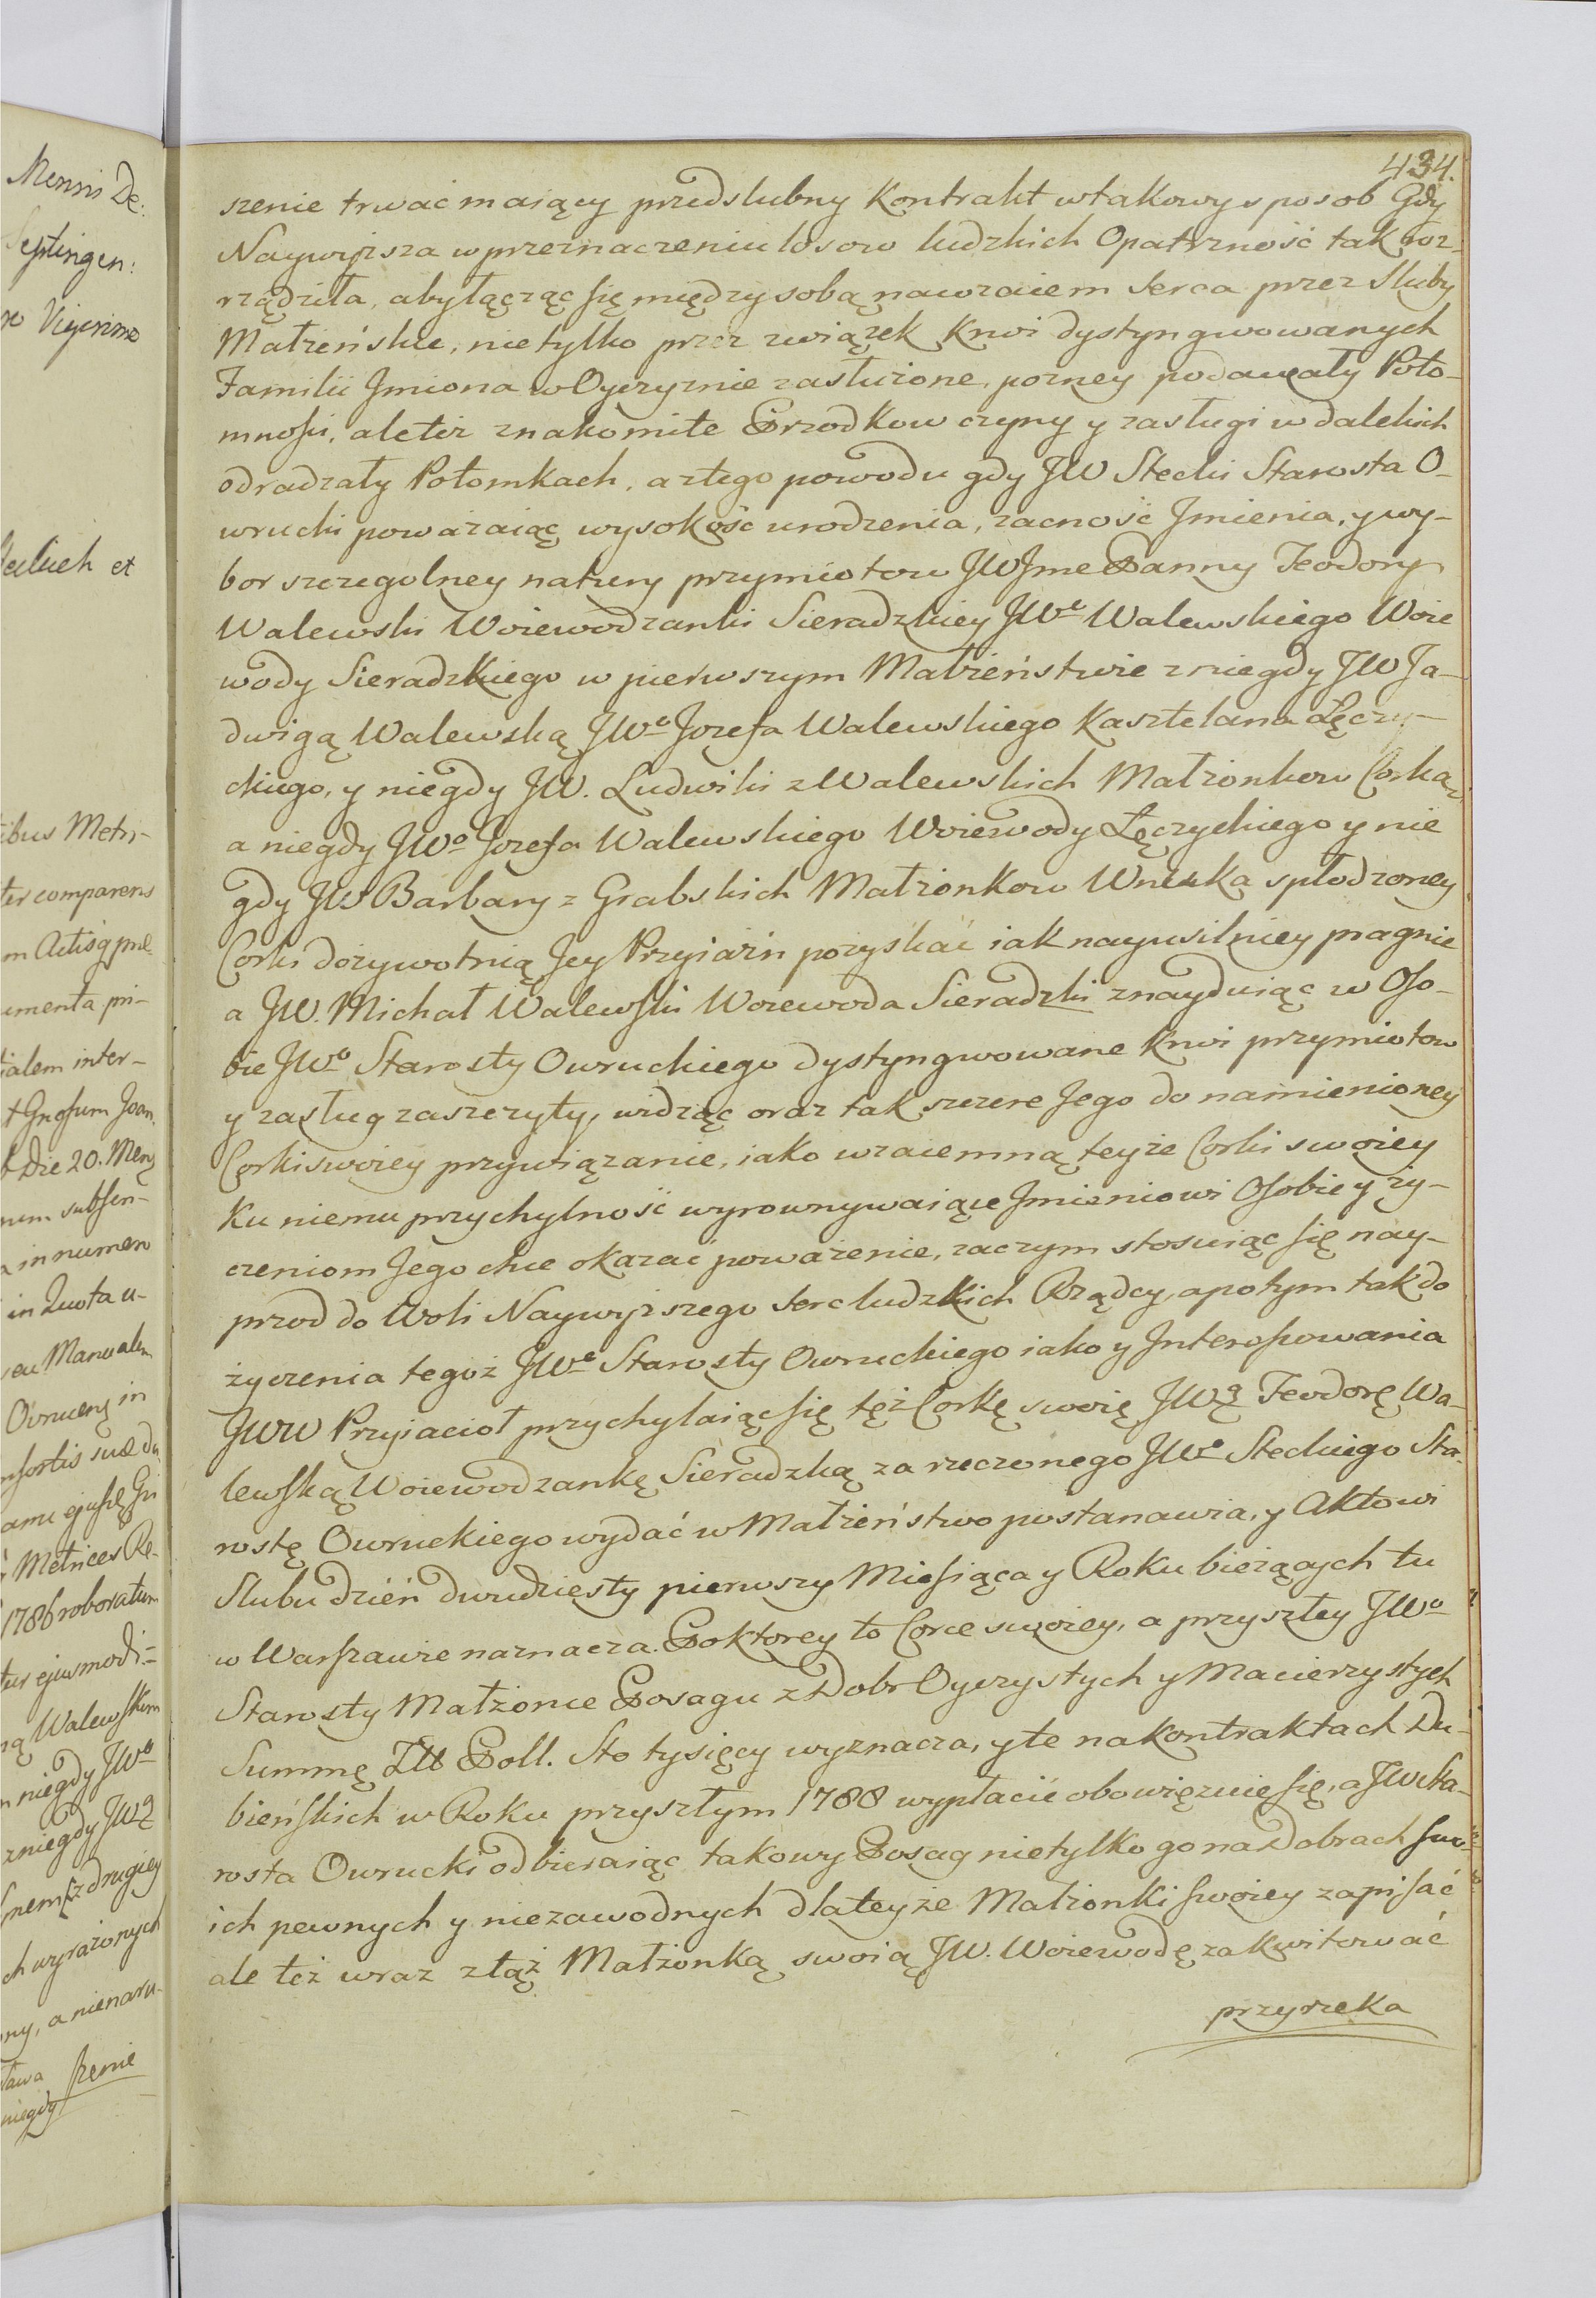 Mensis De:
Septingen:
Vigesimo
et
Metri-
ter comparens
m Actisq prae
umenta pri-
ialem inter-
t Gnosum Joan.
Die 20. Mens
num subscri-
in numero
in Quota u-
seu Manualem
Ovruceń in
nsortis suae
Metrices Re-
1786 roboratum
tur ejusmodi
Walewskim
niegdy JWo
z niegdy JWą
z drugiey
ch wyrażonych
ny, a nienaru-
szenie
434.
szenie trwać maiący przedslubny Kontrakt w takowy sposob Gdy
Naywyższa w przeznaczeniu losow ludzkich Opatrzność tak roz-
rządziła, aby łącząc się między sobą nawzaiem Serca przez Sluby
Małżeńskie, nietylko przez związek Krwi dystyngwowanych
Familii Jmiona w Oyczyznie zasłużone, pozney podawały Poto-
mności, ale też znakomite Przodkow czyny y zasługi w dalekich
odradzały Potomkach, a z tego powodu gdy JW Stecki Starosta O-
wrucki poważaiąc wysokość urodzenia, zacność Jmienia, y wy-
bor szczegolney natury przymiotow JWJme Panny Teodory
Walewski Woiewodzanki Sieradzkiey JWo Walewskiego Woie
wody Sieradzkiego w pierwszym Małżeństwie z niegdy JW Ja-
dwigą Walewską JWo Jozefa Walewskiego Kasztelana Łęczy-
ckiego, y niegdy JW. Ludwiki z Walewskich Małżonkow Corką,
a niegdy JWo Jozefa Walewskiego Woiewody Łęczyckiego y nie
gdy JW Barbary z Grabskich Małżonkow Wnuką spłodzoney
Corki dożywotnią Jey Przyiaźń pozyskać iak nayusilniey pragnie
a JW. Michał Walewski Woiewoda Sieradzki znayduiąc w Oso-
bie JWo Starosty Owruckiego dystyngwowane Krwi przymiotow
y zasług zaszczyty, widząc oraz tak szczere Jego do namienioney
Corki swoiey przywiązanie, iako wzaiemną teyże Corki swoiey
Ku niemu przychylność wyrownywaiące Jmieniowi Osobie y ży-
czeniom Jego chce okazać poważenie, zaczym stosuiąc się nay-
przod do Woli Naywyższego serc ludzkich Rządcy, a potym tak do
życzenia tegoż JWo Starosty Owruckiego iako y Jnteressowania
JWW Przyiacioł przychylaiąc się też Corkę swoię JWą Teodorę Wa-
lewską Woiewodzankę Sieradzką za rzeczonego JWo Steckiego Sta-
rostę Owruckiego wydać w Małżeństwo postanawia, y Aktowi
Slubu dzień dwudziesty pierwszy Miesiąca y Roku bieżących tu
w Warszawie naznacza. Po ktorey to Corce swoiey, a przyszłey JWo
Starosty Małżonce Posagu z Dobr Oyczystych y Macierzystych
Summę Złł Poll. Sto tysięcy wyznacza, y te na kontraktach Du-
bieńskich w Roku przyszłym 1788 wypłacić obowięzuie się, a JW Sta-
rosta Owrucki odbieraiąc takowy Posag nietylko go na Dobrach swo-
ich pewnych y niezawodnych dla teyże Małżonki swoiey zapisać
ale też wraz z tąż Małżonką swoią JW. Woiewodę zakwitować
przyrzeka